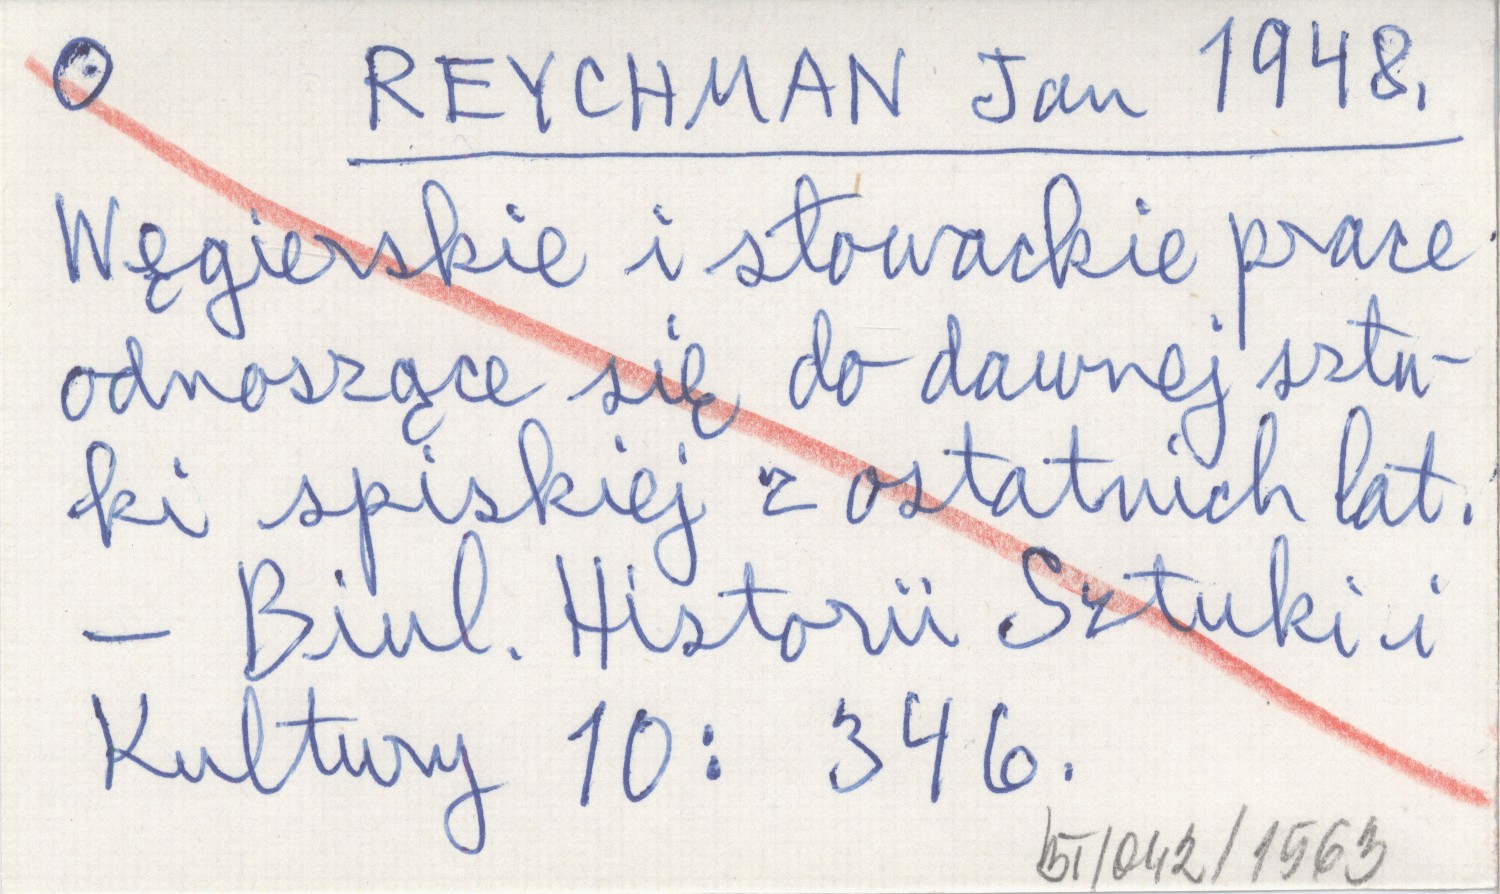 O REYCHMAN Jan 1948.
Węgierskie i słowackie prace
odnoszące się do dawnej sztu-
ki spiskiej z ostatnich lat.
— Biul. Historii Sztuki i
Kultury 10: 346.
/042/1563